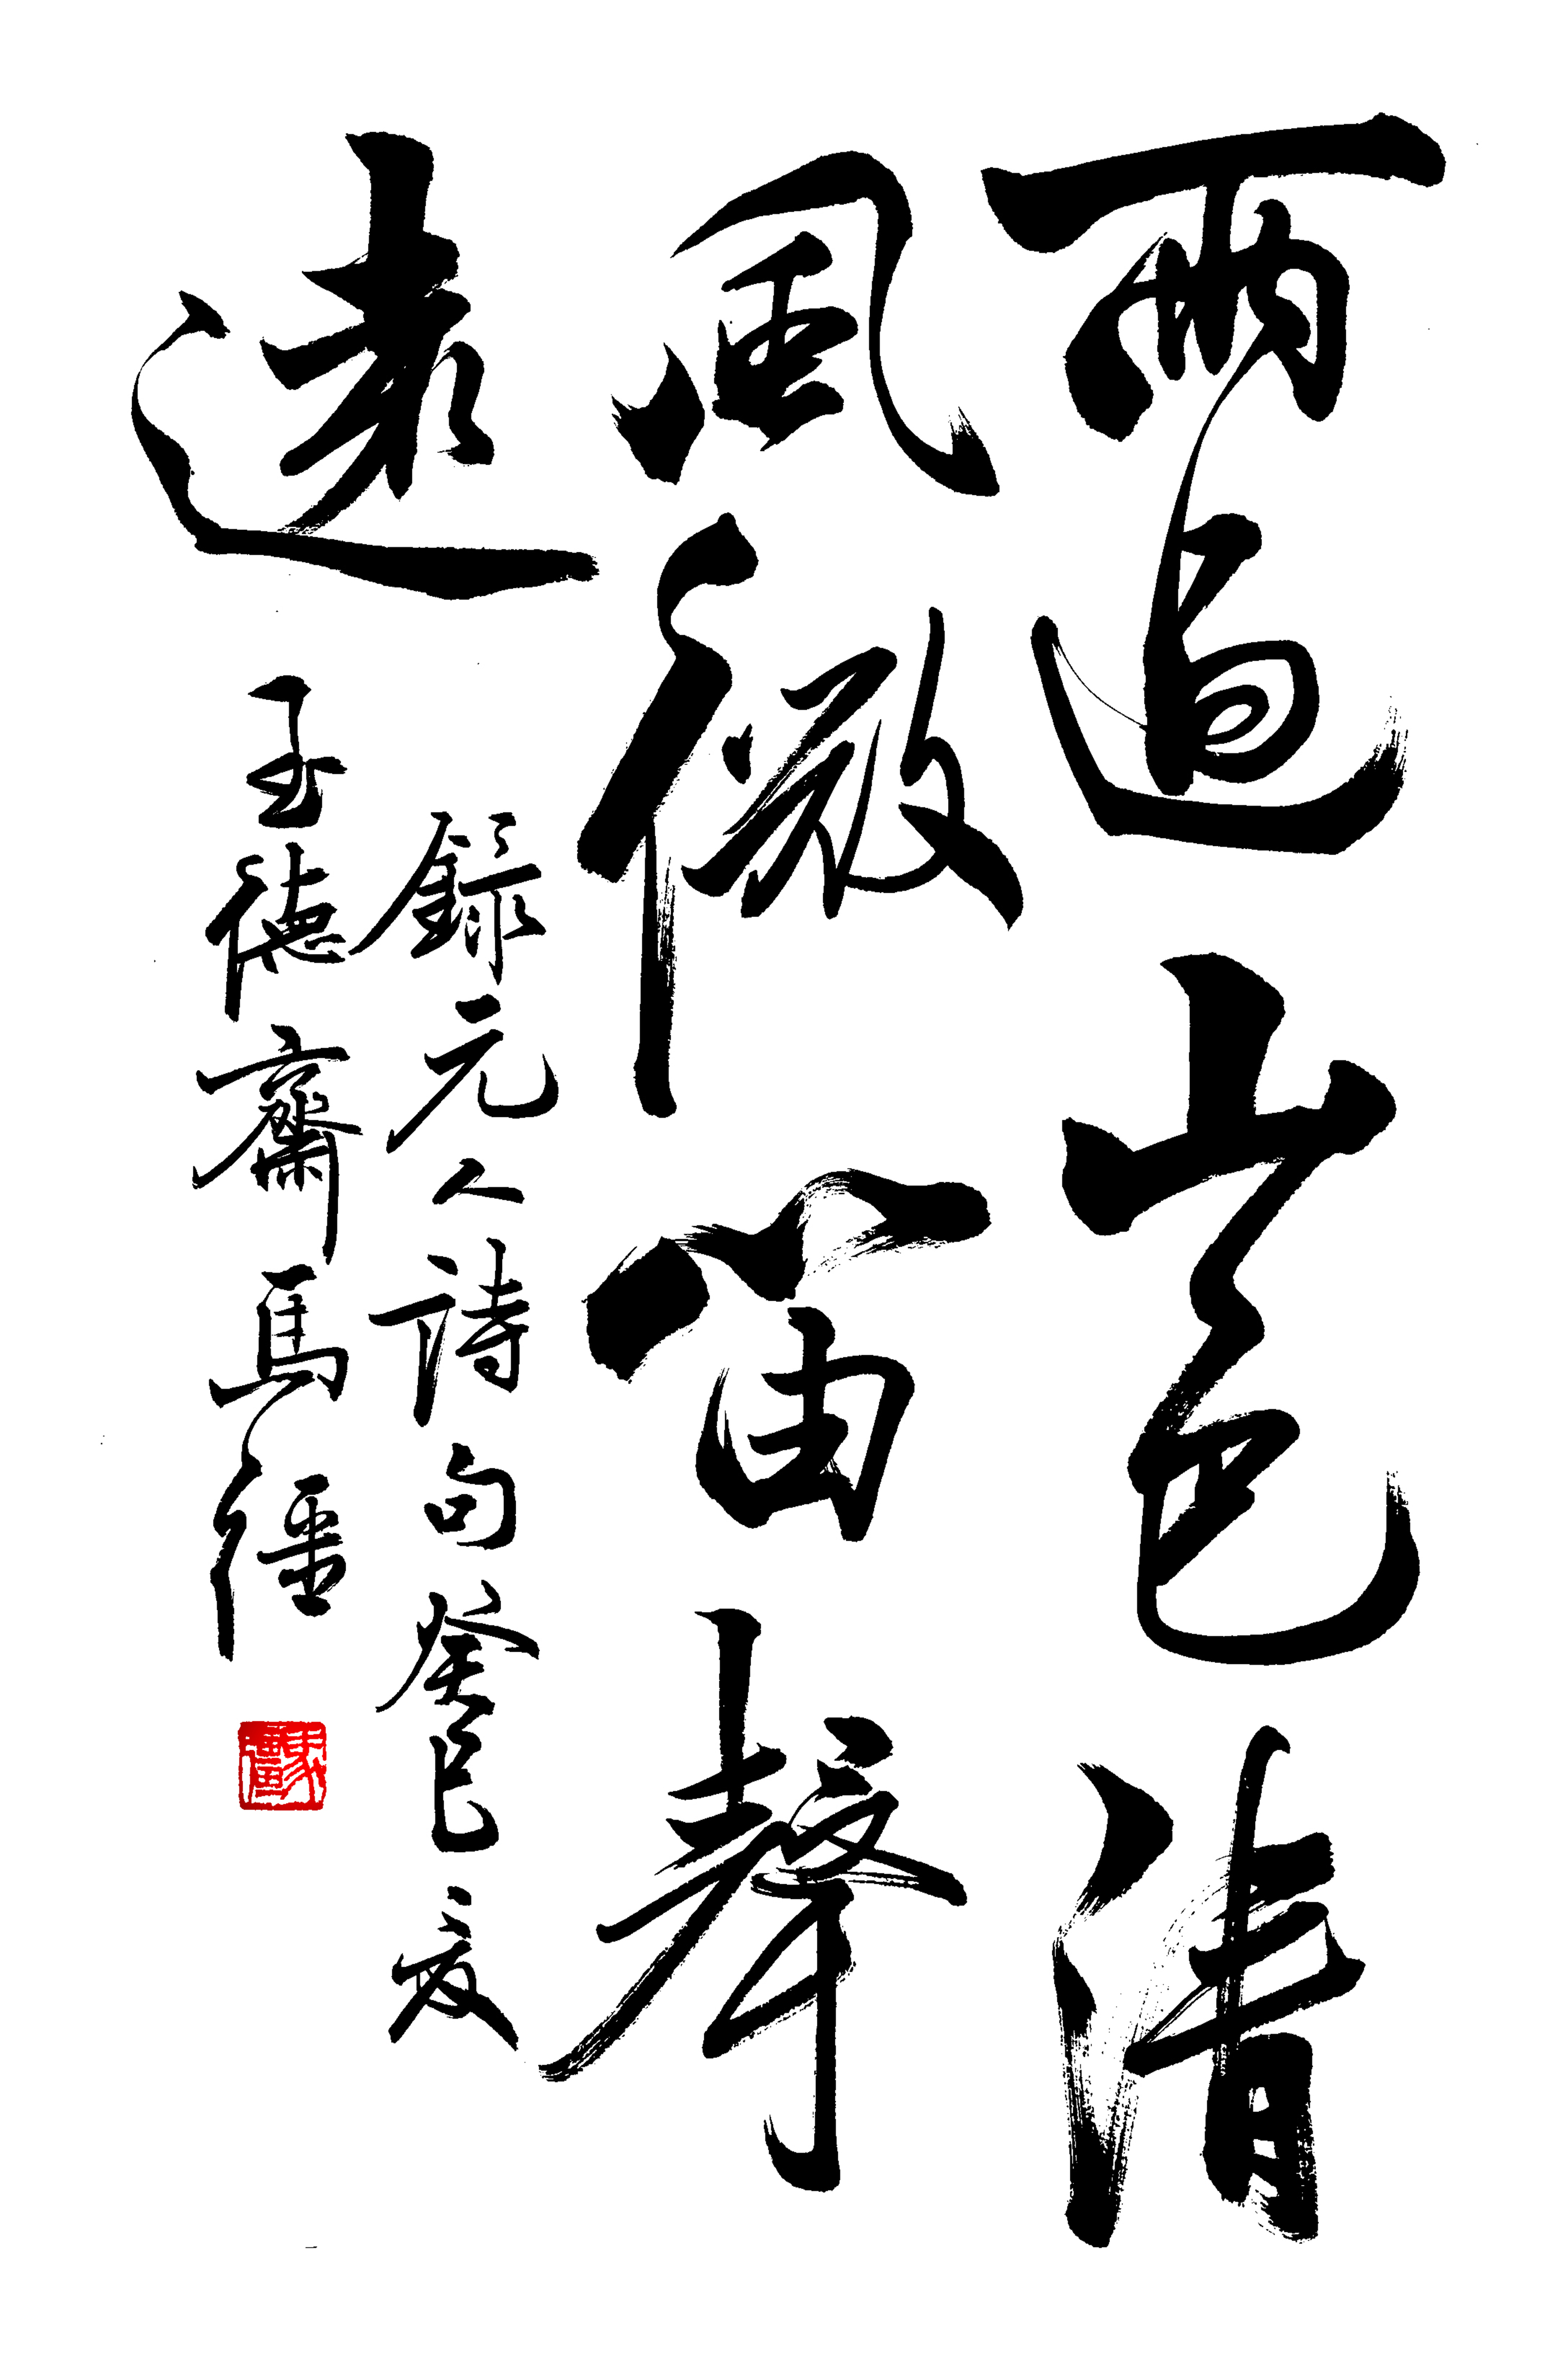 雨過山色清
風微笛聲
遠
錄元人詩句癸巳夏
玉德齋馬